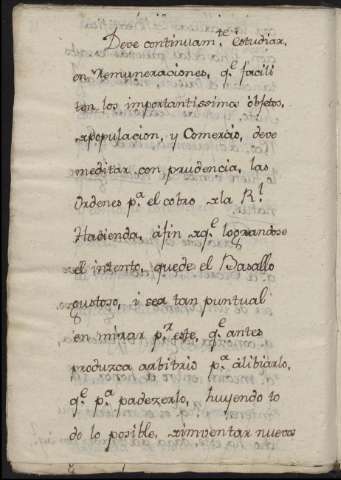 Deve continuam.te estudiar,
en remuneraciones, q.e facili
ten los importantissimos objetos,
de populacion, y Comercio, deve
meditar con prudencia, las
Ordenes p.a el cobro de la R.l
Hacienda, á fin de q.e lograndose
el intento, quede el Basallo
gustoso, i sea tan puntual
en mirar p.r este, q.e antes
produzca arbitrio p.a alibiarlo,
q.e p.a padezerlo, huyendo to
do lo posible, de inventar nuevos